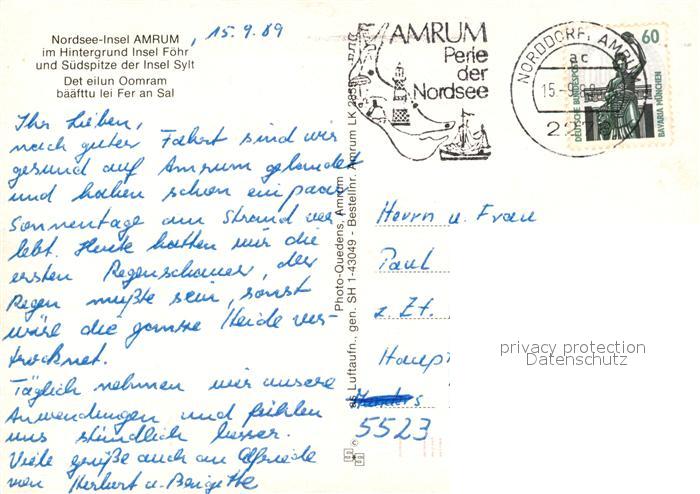 Nordsee-Insel AMRUM
im Hintergrund Insel Föhr
und Südspitze der Insel Sylt
Det eilun Oomram
bääfttu lei Fer an Sal
, 15.9.89
Ihr Lieben,
nach guter Fahrt sind wir
gesund auf Amrum gelandet
und haben schon ein paar
Sonnentage am Strand ver-
lebt. Heute hatten wir die
ersten Regenschauer, der
Regen mußte sein, sonst
wäre die ganze Heide ver-
trocknet.
Täglich nehmen wir unsere
Anwendungen und fühlen
uns stündlich besser.
Viele Grüße auch an Elfriede
von Herbert u. Brigitte
Photo-Quedens, Amrum
Luftaufn., gen. SH 1-43049 - Bestellnr. Amrum LK 2858
AMRUM
Perle
der
Nordsee
NORDDORF, AMRUM
ac
15.-9.
60
DEUTSCHE BUNDESPOST
BAVARIA MÜNCHEN
Herrn u. Frau
Paul
z. Zt.
Haupt
5523
privacy protection
Datenschutz